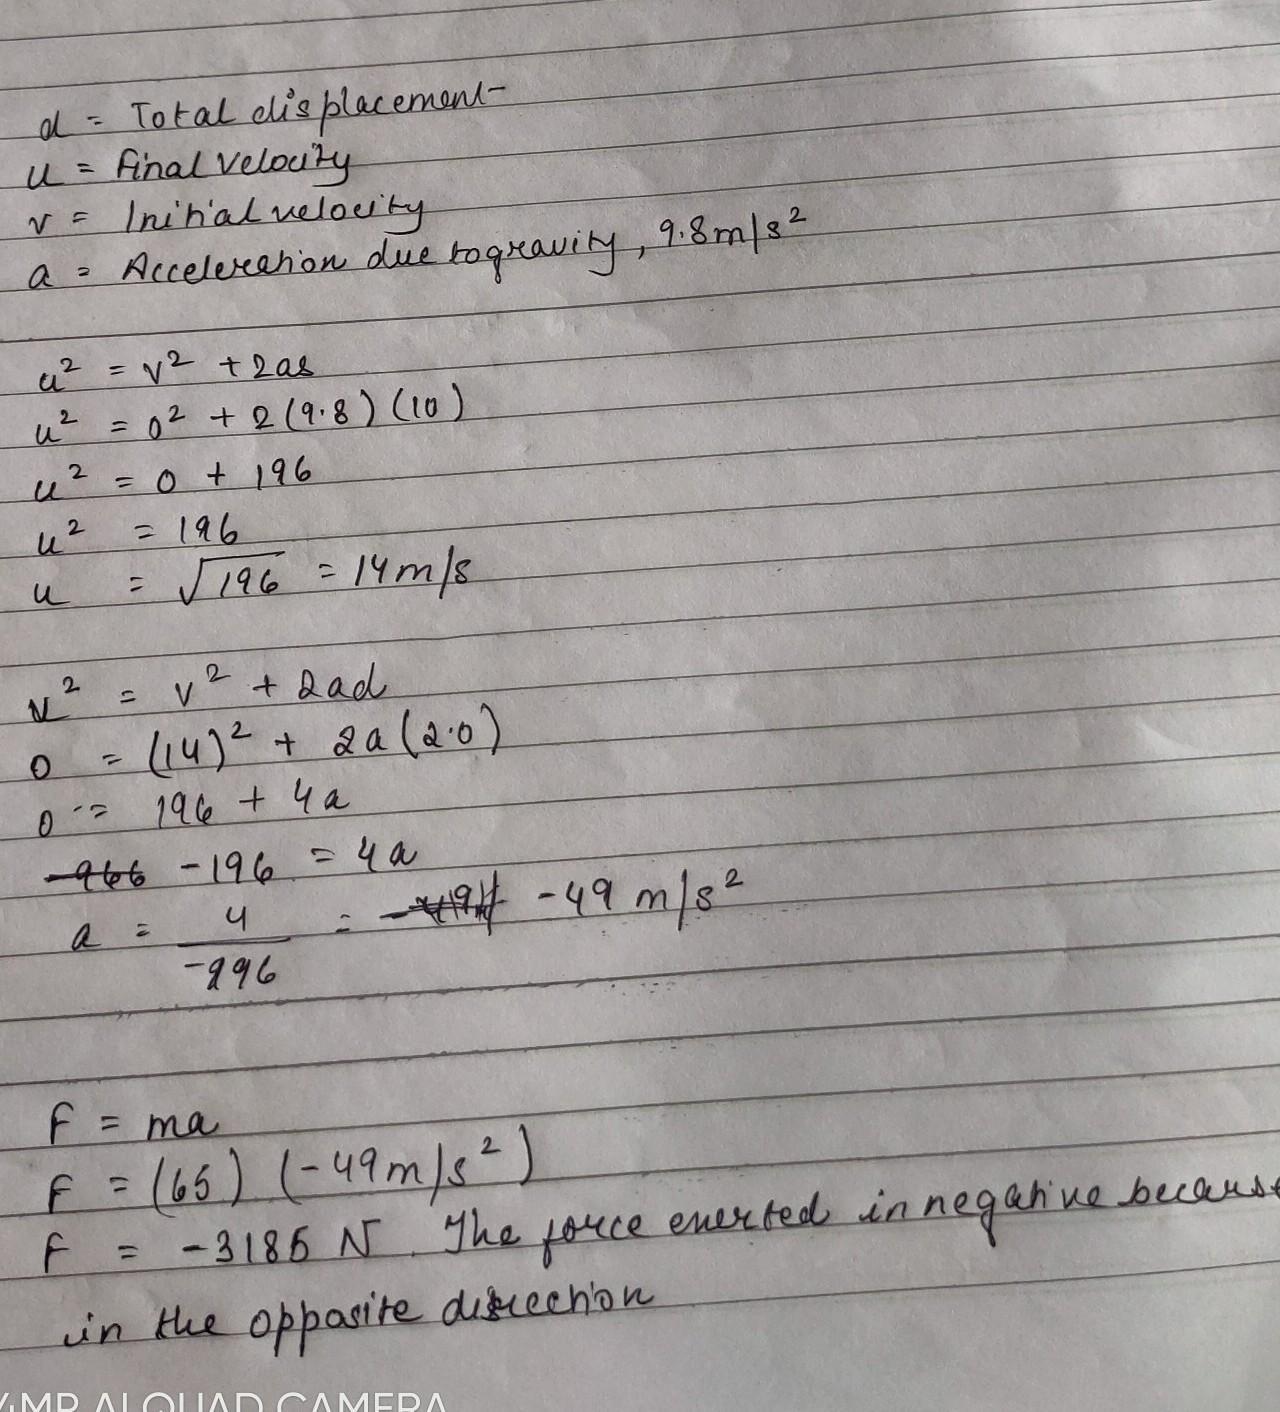 d = Total displacement
u = final velocity
v = Initial velocity
a = Acceleration due to gravity, 9.8m/s²
u² = v² + 2as
u² = 0² + 2(9.8)(10)
u² = 0 + 196
u² = 196
u = √196 = 14m/s
v² = v² + 2ad
0 = (14)² + 2a(2.0)
0 = 196 + 4a
-196 = 4a
a = 4/-196 = -49 m/s²
F = ma
F = (65) (-49m/s²)
F = -3185 N. The force exerted in negative because
in the opposite direction
MP AI QUAD CAMERA